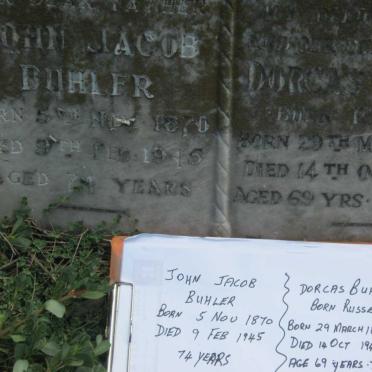 JOHN JACOB
BUHLER
BORN 5TH NOV 1870
DIED 9TH FEB 1945
AGED 74 YEARS
DORCAS
BORN 29TH M
DIED 14TH O
AGED 69 YRS.
JOHN JACOB
BUHLER
BORN 5 NOV 1870
DIED 9 FEB 1945
74 YEARS
DORCAS BU
BORN RUSSE
BORN 29 MARCH 1
DIED 14 OCT 19
AGE 69 YEARS.